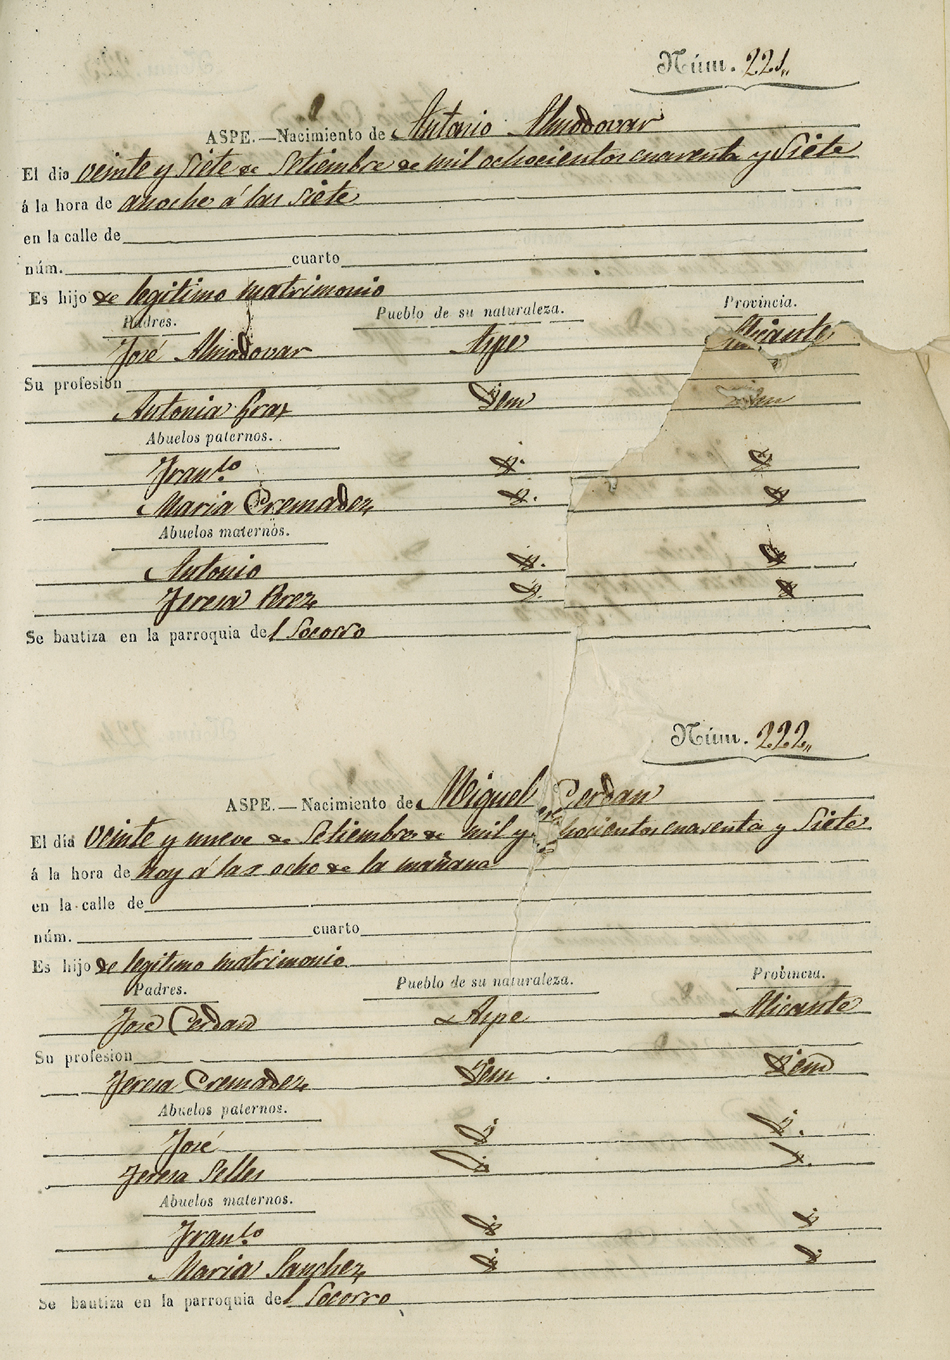 Núm. 221,,
ASPE.—Nacimiento de Antonio Almodovar
El dia veinte y siete de Setiembre de mil ochocientos cuarenta y Siete
á la hora de anoche á las siete
en la calle de
núm. cuarto
Es hijo de legitimo matrimonio
Padres. Pueblo de su naturaleza. Provincia.
José Almodovar Aspe Alicante
Su profesion
Antonia Idem Idem
Abuelos paternos.
Franco
Maria Cremadez
Abuelos maternos.
Antonio
Teresa Perez
Se bautiza en la parroquia del Socorro
Núm. 222,,
ASPE.—Nacimiento de Miguel Cerdan
El dia veinte y nueve de Setiembre de mil y hocientos cuarenta y Siete
á la hora de hoy á las ocho de la mañana
en la calle de
núm. cuarto
Es hijo de legitimo matrimonio
Padres. Pueblo de su naturaleza. Provincia.
José Cerdan Aspe Alicante
Su profesion
Teresa Cremadez Idem Idem
Abuelos paternos.
José
Teresa Selles
Abuelos maternos.
Franco
Maria Sanchez
Se bautiza en la parroquia del Socorro